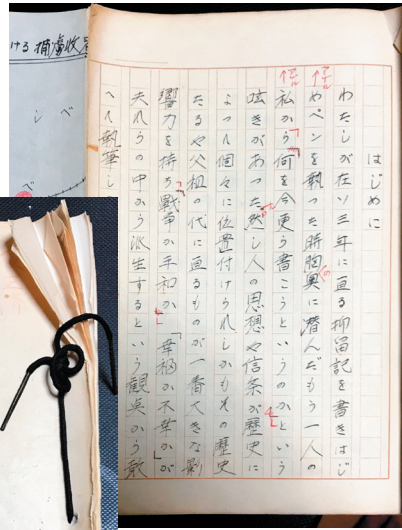 はじめに
わたしが在ソ三年に亘る抑留記を書きはじ
めペンを執った時胸の奥に潜んだもう一人の
私から「何を今更ら書こうというのか」という
呟きがあった然し人の思想や信条が歴史に
よって個々に位置付けられしかもその歴史
たるや父祖の代に亘るものが一番大きな影
響力を持ち「戰争か平和か」「幸福か不幸か」が
夫れらの中から派生するという観点から敢
へて執筆し
ける 捕虜收